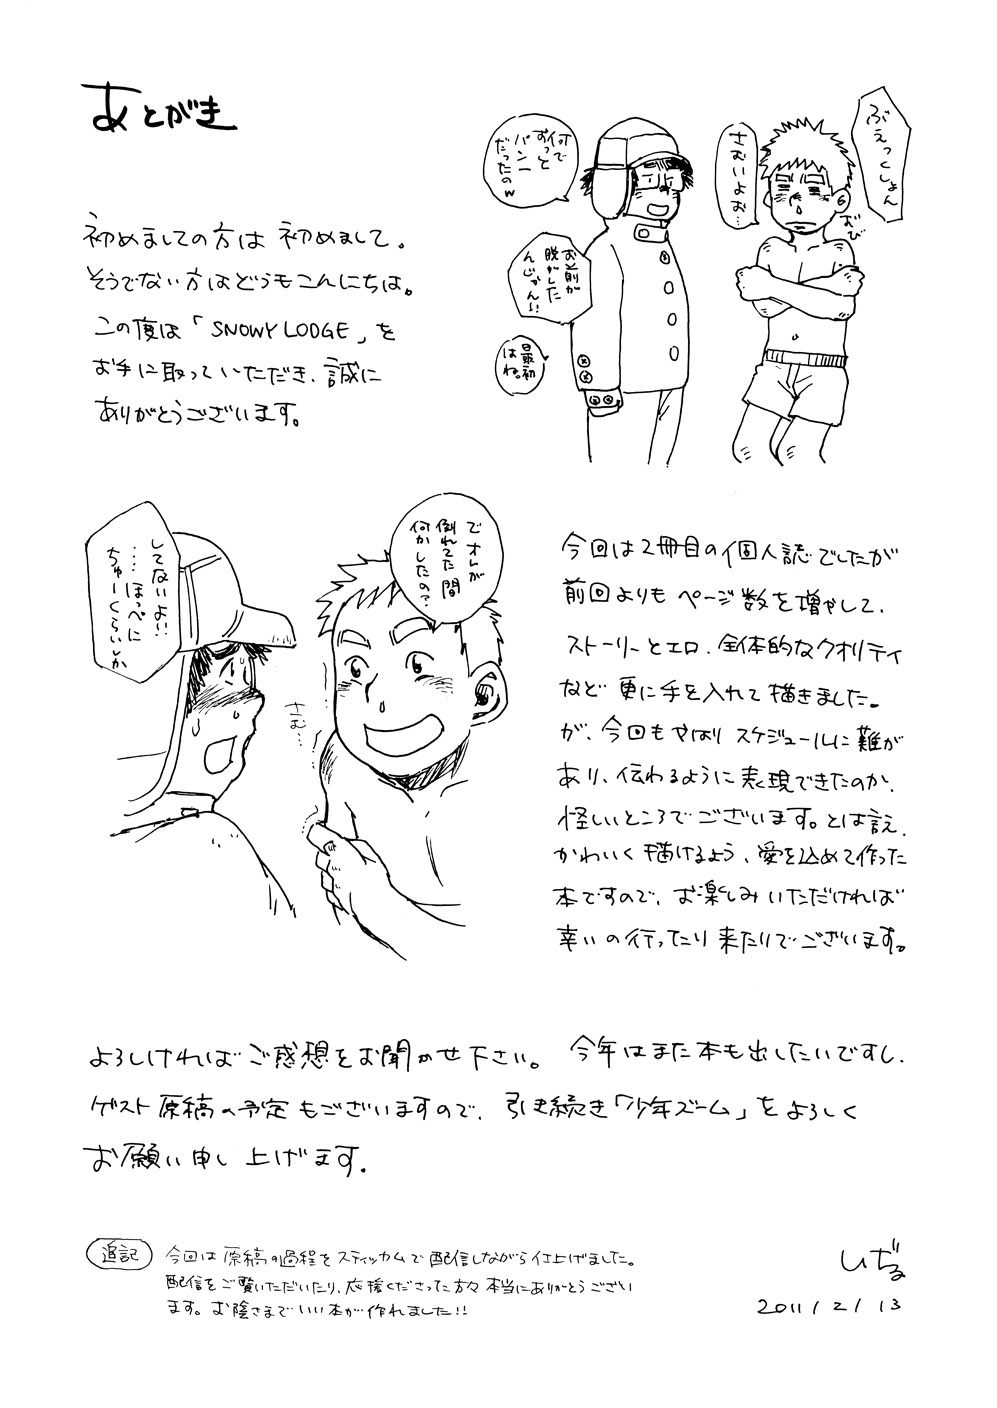 あとがき
初めましての方は 初めまして。
そうでない方はどうもこんにちは。
この度は「SNOWY LODGE」を
お手に取っていただき、誠に
ありがとうございます。
ぶえっくしょん
さむいよお…
おび
何で
おっと
パンー
だったのw
お前が
脱がした
んじゃん!!
最初
はね。
でオレが
倒れてた間
何かしたの?
してないよ!!
…ほっぺに
ちゅーくらいしか
さむ…
今回は2冊目の個人誌でしたが
前回よりも ページ数を増やして、
ストーリーとエロ、全体的なクオリティ
など 更に手を入れて描きました。
が、今回もやはり スケジュールに難が
あり、伝わるように表現できたのか、
怪しいところでございます。とは言え、
かわいく描けるよう、愛を込めて作った
本ですので、お楽しみいただければ
幸いの行ったり来たりでございます。
よろしければご感想をお聞かせ下さい。 今年はまた本も出したいですし、
ゲスト原稿の予定もございますので、引き続き「少年ズーム」をよろしく
お願い申し上げます。
追記 今回は原稿の過程をスティッカムで配信しながら仕上げました。
配信をご覧いただいたり、応援くださった方々本当にありがとうござい
ます。お陰さまでいい本が作れました!!
しげる
2011/2/13